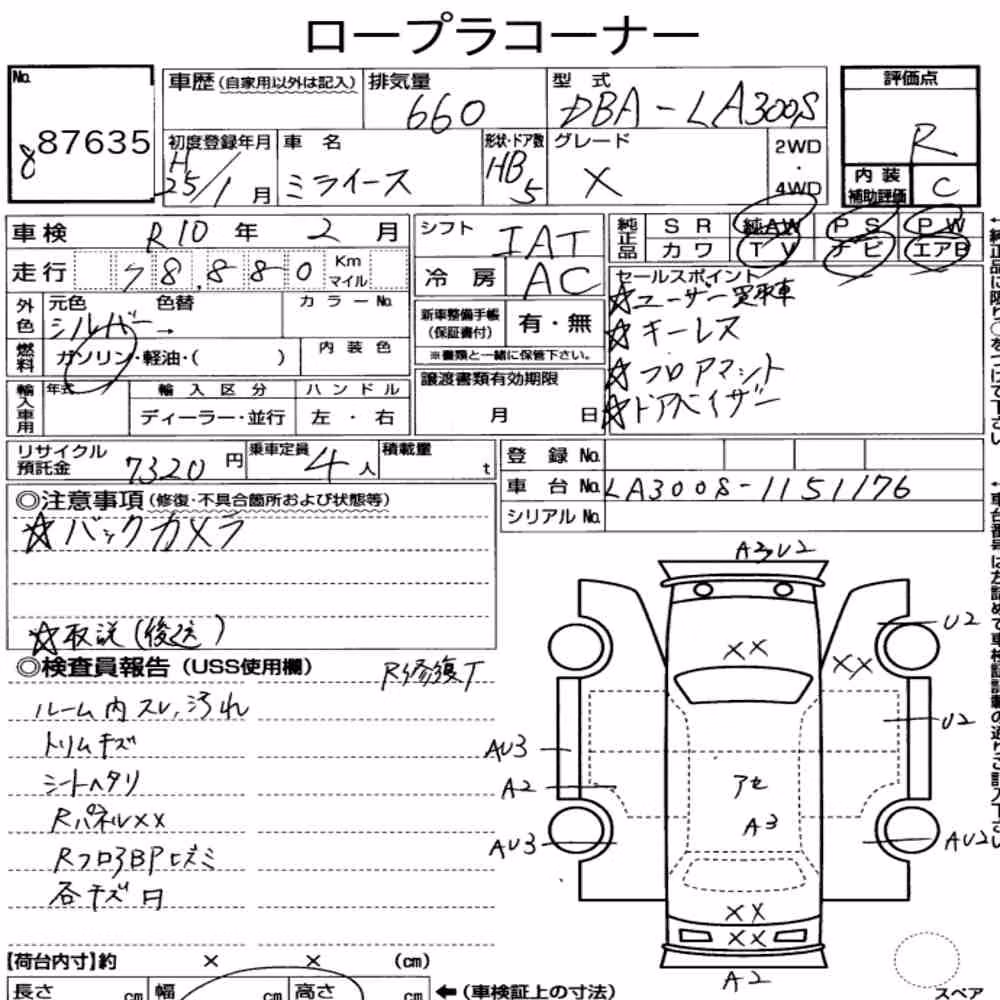 ロープラコーナー
No.
887635
車歴(自家用以外は記入)
排気量
660
型式
DBA-LA300S
評価点
R
初度登録年月
H
25/1月
車名
ミライース
形状・ドア数
HB
5
グレード
X
2WD
・
4WD
内装
補助評価
C
車検 R10年 2月
走行 78,880 Km
マイル
外色
元色
色替
カラーNo.
シルバー→
燃料
ガソリン・軽油・( )
内装色
輸入車用
年式
輸入区分
ハンドル
ディーラー・並行
左・右
シフト IAT
冷房 AC
新車整備手帳
(保証書付)
有・無
※書類と一緒に保管下さい。
譲渡書類有効期限
月 日
純正品
SR 純AW PS PW
カワ TV ナビ エアB
セールスポイント
☆ユーザー買取車
☆キーレス
☆フロアマット
☆ドアバイザー
リサイクル
預託金
7320円
乗車定員
4人
積載量
t
登録No.
車台No. LA300S-1151176
シリアルNo.
◎注意事項(修復・不具合箇所および状態等)
☆バックカメラ
☆取説(後送)
◎検査員報告(USS使用欄)
R修復丁
ルーム内スレ,汚れ
トリムキズ
シートヘタリ
RパネルXX
RフロアBPヒズミ
各キズ凹
A3U2
XX
XX
U2
U2
AU3
A2
AU3
アセ
A3
AU2
XX
XX
A2
【荷台内寸】約 × × (cm)
長さ cm 幅 cm 高さ cm
←(車検証上の寸法)
スペア